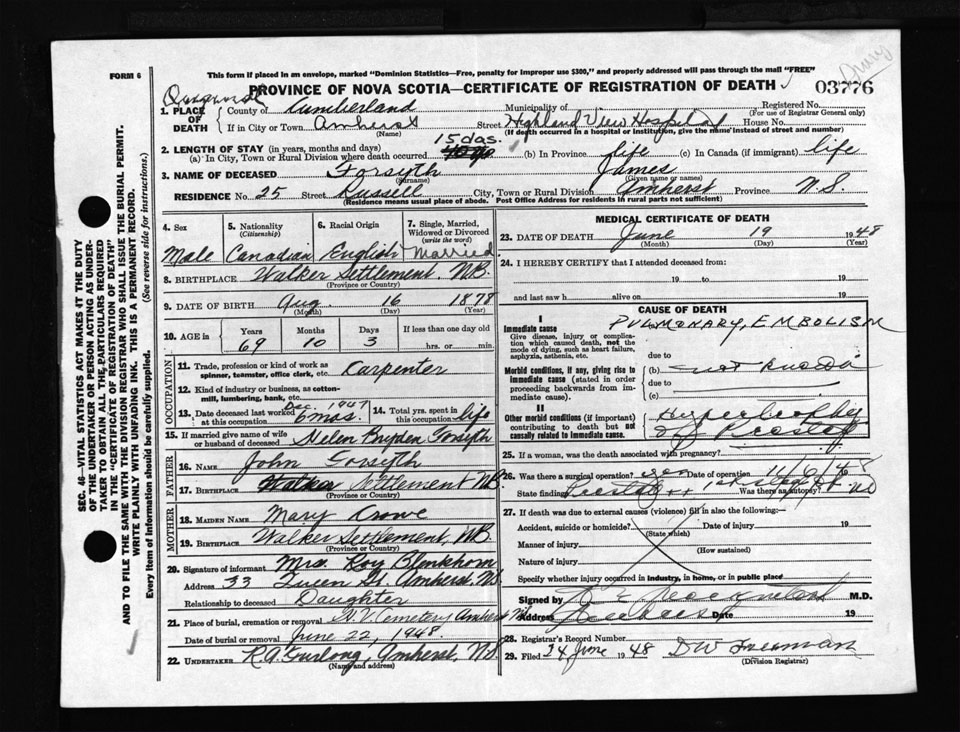 This form if placed in an envelope, marked "Dominion Statistics—Free, penalty for improper use $300," and properly addressed will pass through the mail "FREE"
FORM 6
PROVINCE OF NOVA SCOTIA—CERTIFICATE OF REGISTRATION OF DEATH
03776
1. PLACE OF DEATH
County of Cumberland Municipality of Registered No.
(For use of Registrar General only)
If in City or Town Amherst Street Highland View Hospital House No.
(Name) (If death occurred in a hospital or institution, give the name instead of street and number)
2. LENGTH OF STAY (in years, months and days) 15 das.
(a) In City, Town or Rural Division where death occurred (b) In Province life (c) In Canada (if immigrant) life
3. NAME OF DECEASED Forsyth James
(Surname) (Given name or names)
RESIDENCE No. 25 Street Russell City, Town or Rural Division Amherst Province N.S.
(Residence means usual place of abode. Post Office Address for residents in rural parts not sufficient)
SEC. 46—VITAL STATISTICS ACT MAKES AT THE DUTY
OF THE UNDERTAKER OR PERSON ACTING AS UNDER-
TAKER TO OBTAIN ALL THE PARTICULARS REQUIRED
IN THE "CERTIFICATE OF REGISTRATION OF DEATH"
AND TO FILE THE SAME WITH THE DIVISION REGISTRAR WHO SHALL ISSUE THE BURIAL PERMIT.
WRITE PLAINLY WITH UNFADING INK. THIS IS A PERMANENT RECORD.
Every item of Information should be carefully supplied. (See reverse side for instructions.)
4. Sex
Male
5. Nationality
(Citizenship)
Canadian
6. Racial Origin
English
7. Single, Married,
Widowed or Divorced
(write the word)
Married
8. BIRTHPLACE Walker Settlement, N.B.
(Province or Country)
9. DATE OF BIRTH Aug. 16 1878
(Month) (Day) (Year)
10. AGE in
Years Months Days If less than one day old
69 10 3 hrs. or min.
OCCUPATION
11. Trade, profession or kind of work as
spinner, teamster, office clerk, etc. Carpenter
12. Kind of industry or business, as cotton-
mill, lumbering, bank, etc.
13. Date deceased last worked Dec. 1947
at this occupation 6 mos.
14. Total yrs. spent in
this occupation life
15. If married give name of wife
or husband of deceased Helen Bryden Forsyth
FATHER
16. NAME John Forsyth
17. BIRTHPLACE Walker Settlement N.B.
(Province or Country)
MOTHER
18. MAIDEN NAME Mary Crowe
19. BIRTHPLACE Walker Settlement, N.B.
(Province or Country)
20. Signature of informant Mrs. Roy Blenkhorn
Address 33 Queen St. Amherst, N.S.
Relationship to deceased Daughter
21. Place of burial, cremation or removal H.V. Cemetery Amherst N.S.
Date of burial or removal June 22, 1948.
22. UNDERTAKER R.A. Furlong, Amherst, N.S.
(Name and address)
MEDICAL CERTIFICATE OF DEATH
23. DATE OF DEATH June 19 1948
(Month) (Day) (Year)
24. I HEREBY CERTIFY that I attended deceased from:
19 to 19
and last saw h alive on 19
CAUSE OF DEATH
I
Immediate cause PULMONARY, EMBOLISM
Give disease, injury or complica-
tion which caused death, not the
mode of dying, such as heart failure,
asphyxia, asthenia, etc.
due to
Morbid conditions, if any, giving rise to
immediate cause (stated in order
proceeding backwards from im-
mediate cause).
(b)
due to
(c)
II
Other morbid conditions (if important)
contributing to death but not
causally related to immediate cause.
Hypertrophy
of Prostate
25. If a woman, was the death associated with pregnancy?
26. Was there a surgical operation? yes Date of operation 11/6/48
State finding Was there autopsy? no
27. If death was due to external causes (violence) fill in also the following:—
Accident, suicide or homicide? Date of injury 19
(State which)
Manner of injury
(How sustained)
Nature of injury
Specify whether injury occurred in industry, in home, or in public place
Signed by M.D.
Address Date 19
28. Registrar's Record Number
29. Filed 24 June 1948 D W Freeman
(Division Registrar)